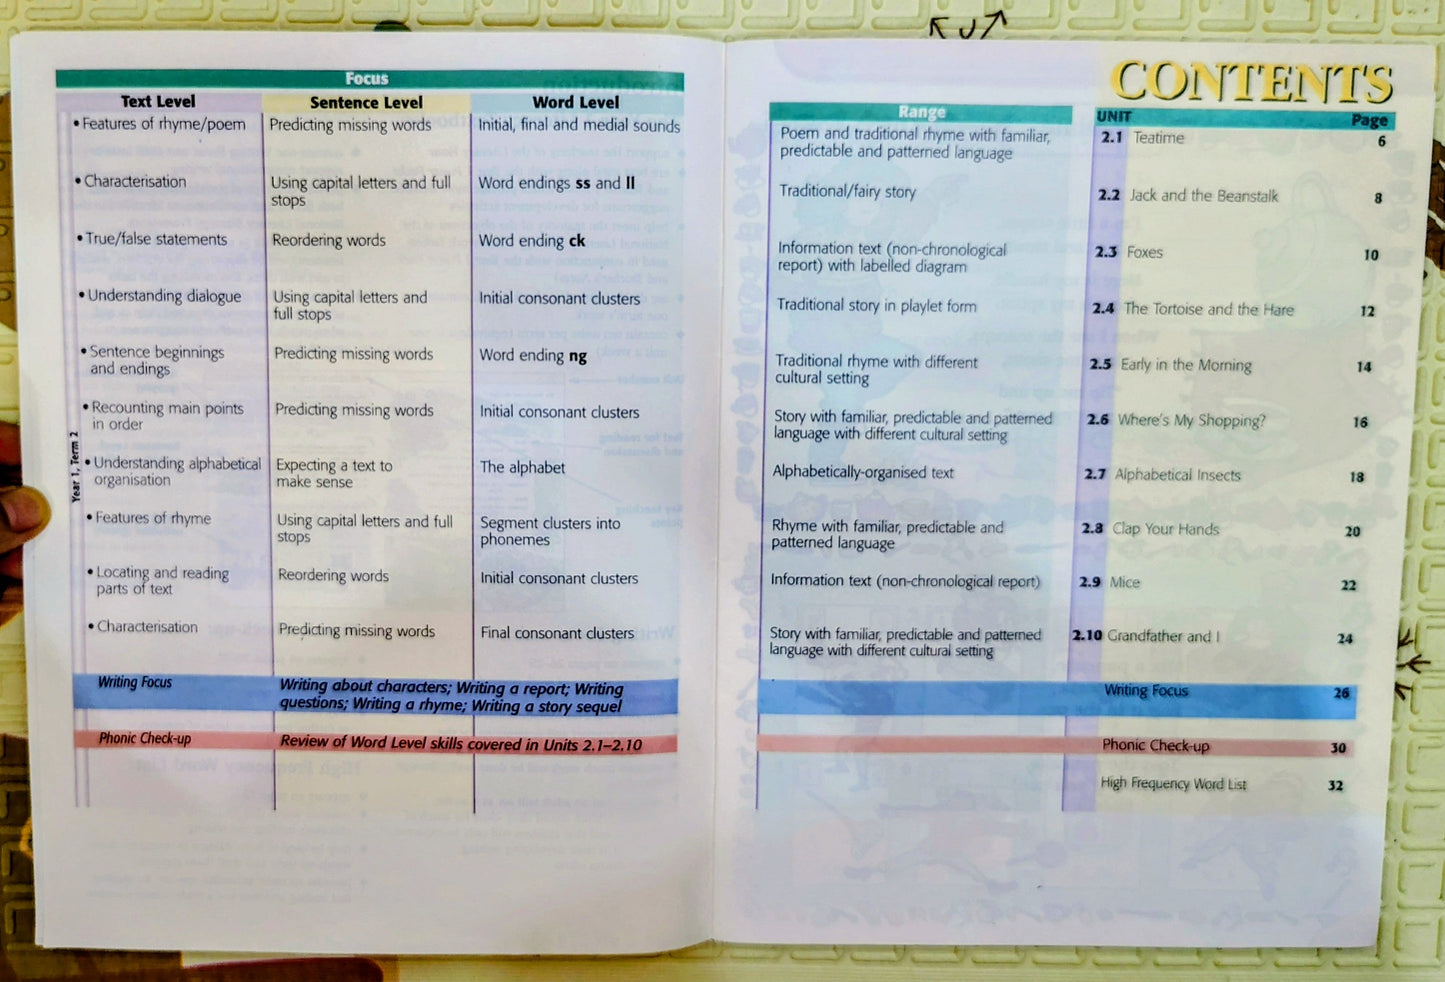 Focus
Text Level Sentence Level Word Level
• Features of rhyme/poem Predicting missing words Initial, final and medial sounds
• Characterisation Using capital letters and full Word endings ss and ll
stops
• True/false statements Reordering words Word ending ck
• Understanding dialogue Using capital letters and Initial consonant clusters
full stops
• Sentence beginnings Predicting missing words Word ending ng
and endings
• Recounting main points Predicting missing words Initial consonant clusters
in order
• Understanding alphabetical Expecting a text to The alphabet
organisation make sense
• Features of rhyme Using capital letters and full Segment clusters into
stops phonemes
• Locating and reading Reordering words Initial consonant clusters
parts of text
• Characterisation Predicting missing words Final consonant clusters
Year 1, Term 2
Writing Focus Writing about characters; Writing a report; Writing
questions; Writing a rhyme; Writing a story sequel
Phonic Check-up Review of Word Level skills covered in Units 2.1–2.10
CONTENTS
Range UNIT Page
Poem and traditional rhyme with familiar, 2.1 Teatime 6
predictable and patterned language
Traditional/fairy story 2.2 Jack and the Beanstalk 8
Information text (non-chronological 2.3 Foxes 10
report) with labelled diagram
Traditional story in playlet form 2.4 The Tortoise and the Hare 12
Traditional rhyme with different 2.5 Early in the Morning 14
cultural setting
Story with familiar, predictable and patterned 2.6 Where's My Shopping? 16
language with different cultural setting
Alphabetically-organised text 2.7 Alphabetical Insects 18
Rhyme with familiar, predictable and 2.8 Clap Your Hands 20
patterned language
Information text (non-chronological report) 2.9 Mice 22
Story with familiar, predictable and patterned 2.10 Grandfather and I 24
language with different cultural setting
Writing Focus 26
Phonic Check-up 30
High Frequency Word List 32